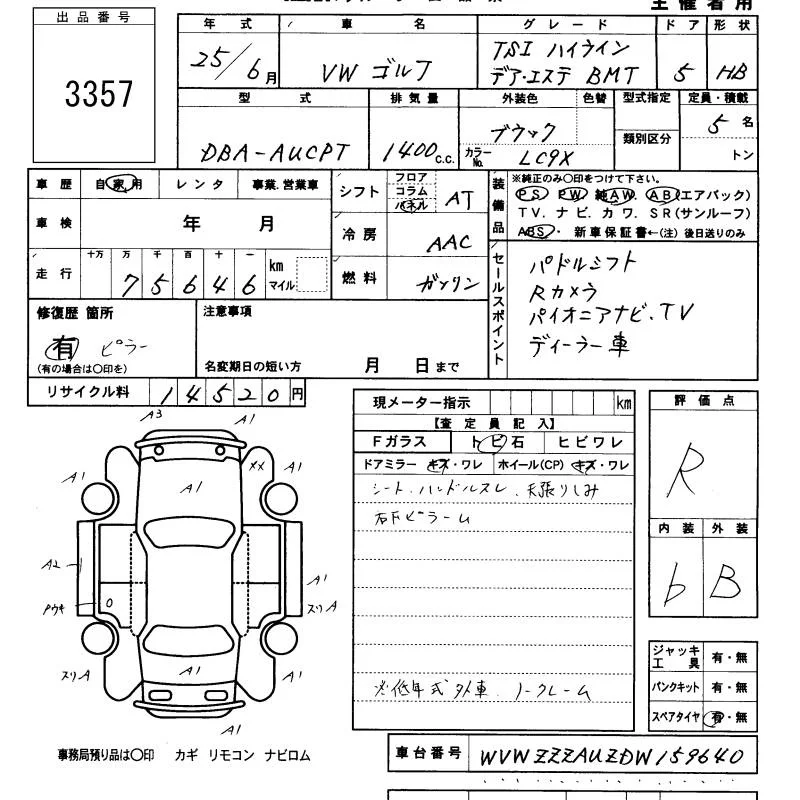 主催者用
出品番号
3357
年式 車名 グレード ドア 形状
25/6月 VW ゴルフ TSI ハイライン
デア・エステ BMT 5 HB
型式 排気量 外装色 色替 型式指定 定員・積載
DBA-AUCPT 1400c.c. ブラック 5名
カラーNo. LC9X 類別区分 トン
車歴 自家用 レンタ 事業.営業車
車検 年 月
走行 十万 万 千 百 十
75646 km
マイル
シフト フロア
コラム
パネル AT
冷房 AAC
燃料 ガソリン
装備品 ※純正のみ〇印をつけて下さい。
PS PW 純AW. AB(エアバック)
TV. ナビ. カワ. SR(サンルーフ)
ABS・ 新車保証書←(注) 後日送りのみ
セールスポイント
パドルシフト
Rカメラ
パイオニアナビ.TV
ディーラー車
修復歴 箇所
有 ピラー
(有の場合は〇印を)
注意事項
名変期日の短い方 月 日まで
リサイクル料 14520円
A3 A1
A1 A1 XX A1
A2 A1
Pウキ スリA
スリA A1 A1
A1
現メーター指示 km
【査定員記入】
Fガラス トビ石 ヒビワレ
ドアミラー キズ・ワレ ホイール(CP) キズ・ワレ
シート.ハンドルスレ.天張りしみ
右Fピラーム
※低年式外車.ノークレーム
評価点
R
内装 外装
b B
ジャッキ
工具 有・無
パンクキット 有・無
スペアタイヤ 有・無
事務局預り品は〇印 カギ リモコン ナビロム
車台番号 WVWZZZAUZDW159640